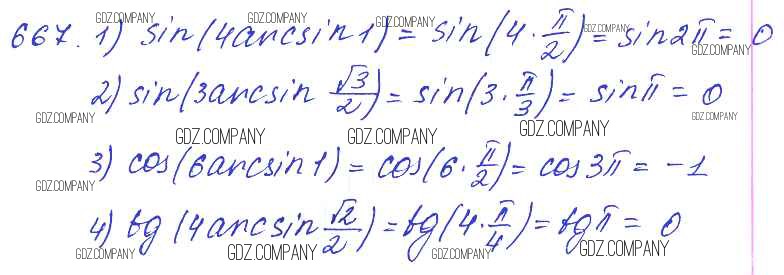 667. 1) sin(4arcsin1) = sin(4·π/2) = sin2π = 0
2) sin(3arcsin √3/2) = sin(3·π/3) = sinπ = 0
3) cos(6arcsin1) = cos(6·π/2) = cos3π = -1
4) tg(4arcsin √2/2) = tg(4·π/4) = tgπ = 0
GDZ.COMPANY GDZ.COMPANY GDZ.COMPANY GDZ.COMPANY GDZ.COMPANY
GDZ.COMPANY GDZ.COMPANY
GDZ.COMPANY GDZ.COMPANY GDZ.COMPANY
GDZ.COMPANY
GDZ.COMPANY GDZ.COMPANY GDZ.COMPANY GDZ.COMPANY